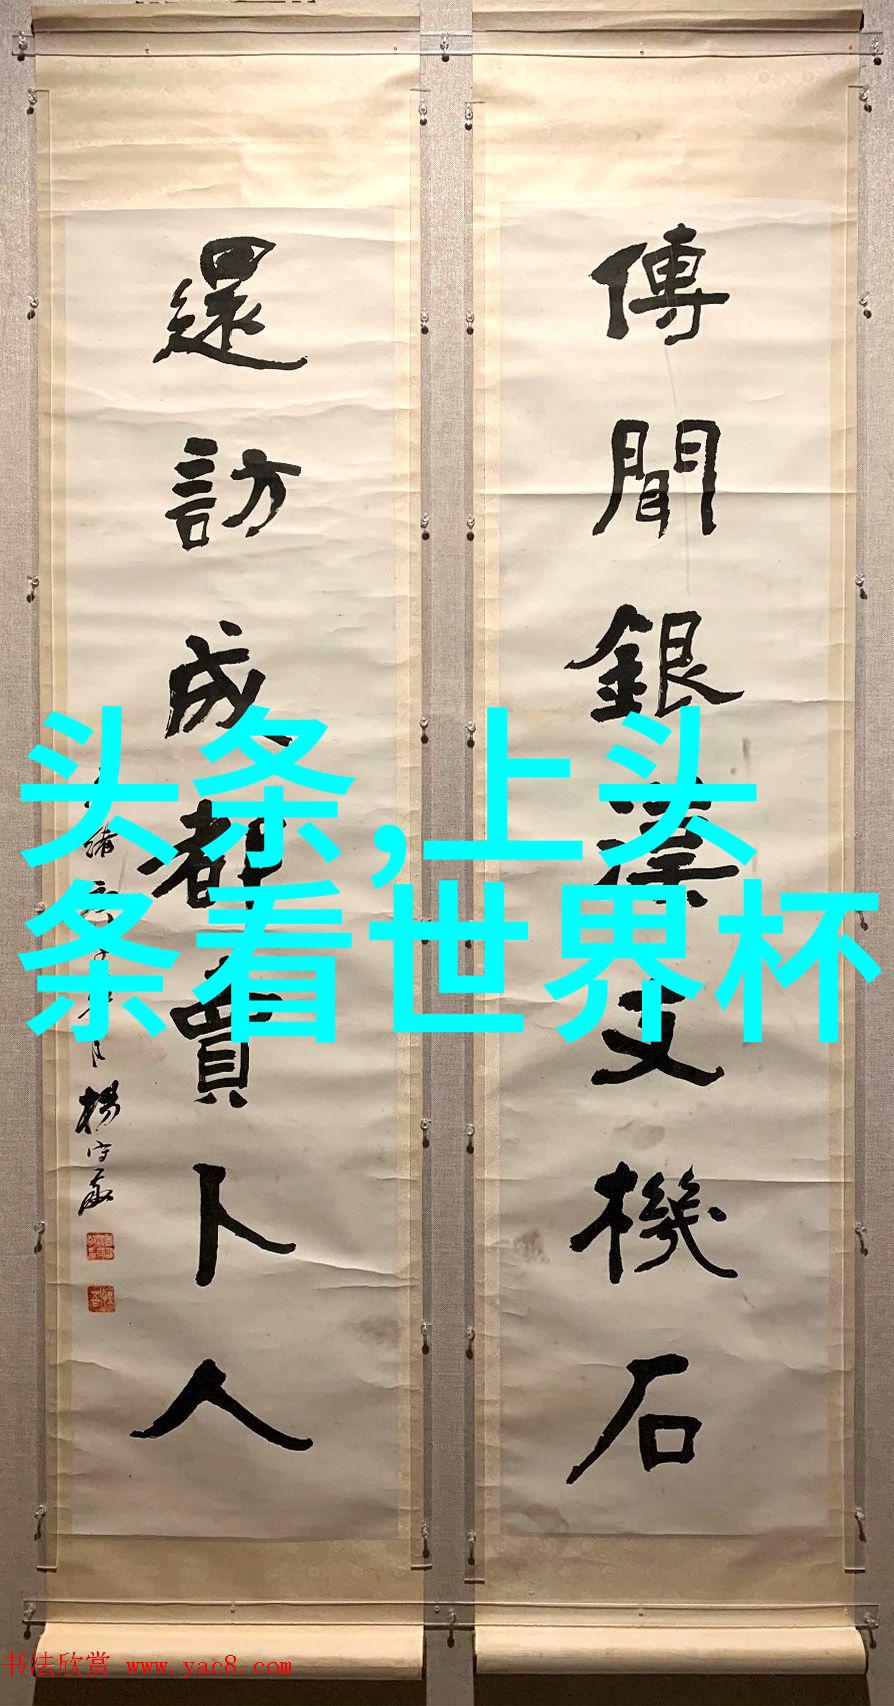 傳聞銀漢支機石
還訪成都賣卜人
緒
月
楊守敬
头条,上头
条看世界杯
书法欣赏 www.yac8.com